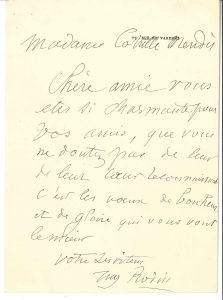 77, RUE DE VARENNE
Madame Catulle Mendès
Chère amie vous
êtes si charmante pour
vos amis, que vous
ne doutez pas de leur
de leur cœur reconnaissant
c'est les vœux de bonheur
et de gloire qui vous vont
le mieux
votre dévoué
Aug Rodin